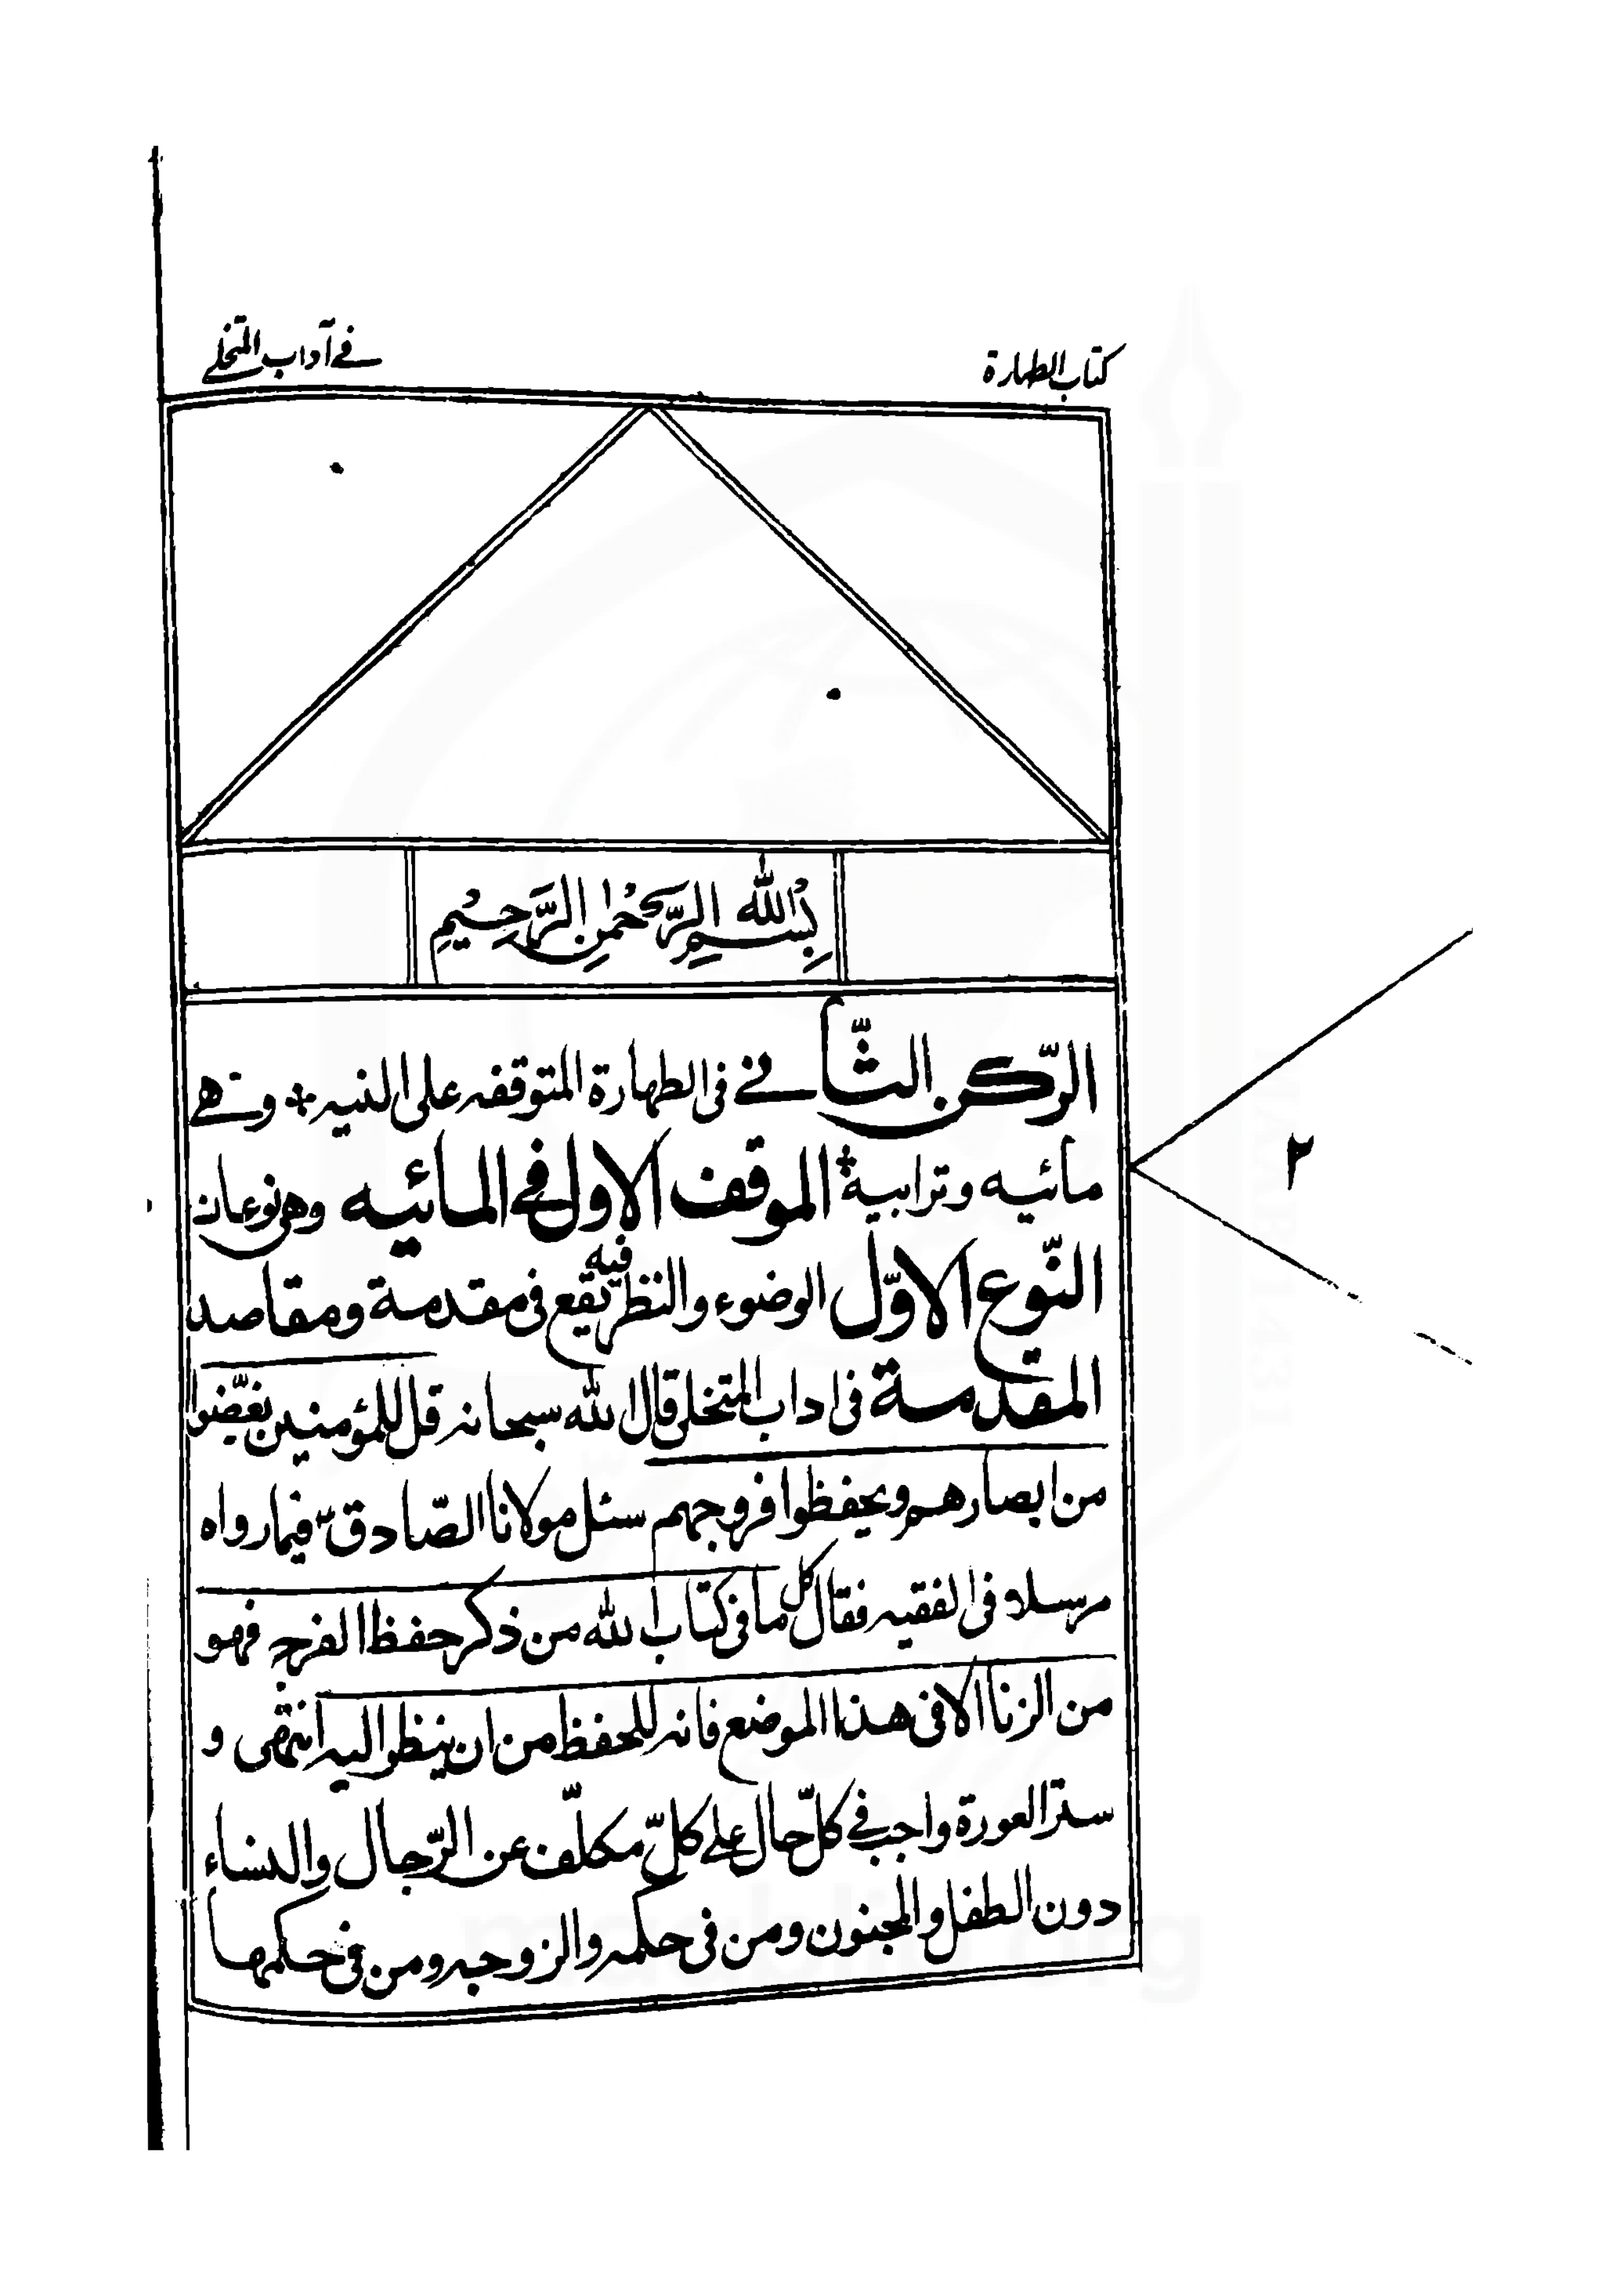 كتاب الطهارة
في آداب المتخلي
بِسْمِ اللهِ الرَّحْمٰنِ الرَّحِيْمِ
الرّكن الثّاني في الطهارة المتوقفه على النيه وهي
مائيه وترابية الموقف الاول في المائيه وهي نوعان
النّوع الاوّل الوضوء والنظر فيه يقع في مقدمة ومقاصد
المقدمة في اداب المتخلي قال الله سبحانه قل للمؤمنين يغضّوا
من ابصارهم ويحفظوا فروجهم سئل مولانا الصّادق فيما رواه
مرسلا في الفقيه فقال كل ما في كتاب الله من ذكر حفظ الفرج فهو
من الزنا الا في هذا الموضع فانه للحفظ من ان ينظر اليه انتهى و
ستر العورة واجب في كلّ حال على كلّ مكلّف عن الرّجال والنساء
دون الطفل والمجنون ومن في حكمه والزوجه ومن في حكمها
٢